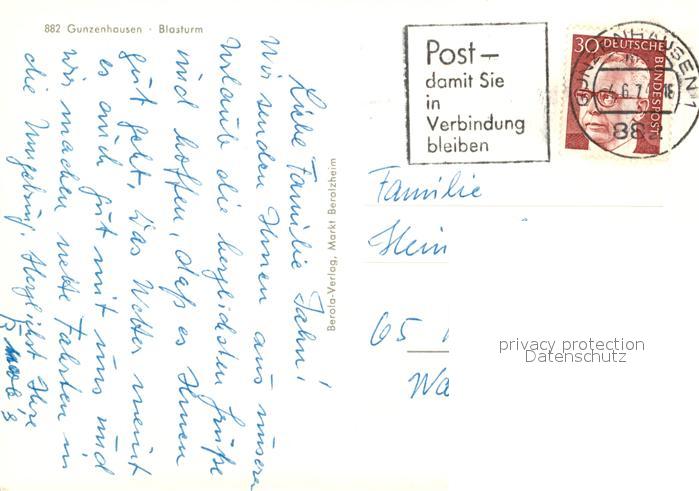 882 Gunzenhausen · Blasturm
Liebe Familie Jahn!
Wir senden Ihnen aus unserem
Urlaub die herzlichsten Grüße
und hoffen, daß es Ihnen
gut geht. Das Wetter meint
es auch gut mit uns und
wir machen nette Fahrten in
die Umgebung. Herzlichst Ihre
Berola-Verlag, Markt Berolzheim
Post –
damit Sie
in
Verbindung
bleiben
30 DEUTSCHE
BUNDESPOST
GUNZENHAUSEN
882
Familie
Hein
65
Wa
privacy protection
Datenschutz